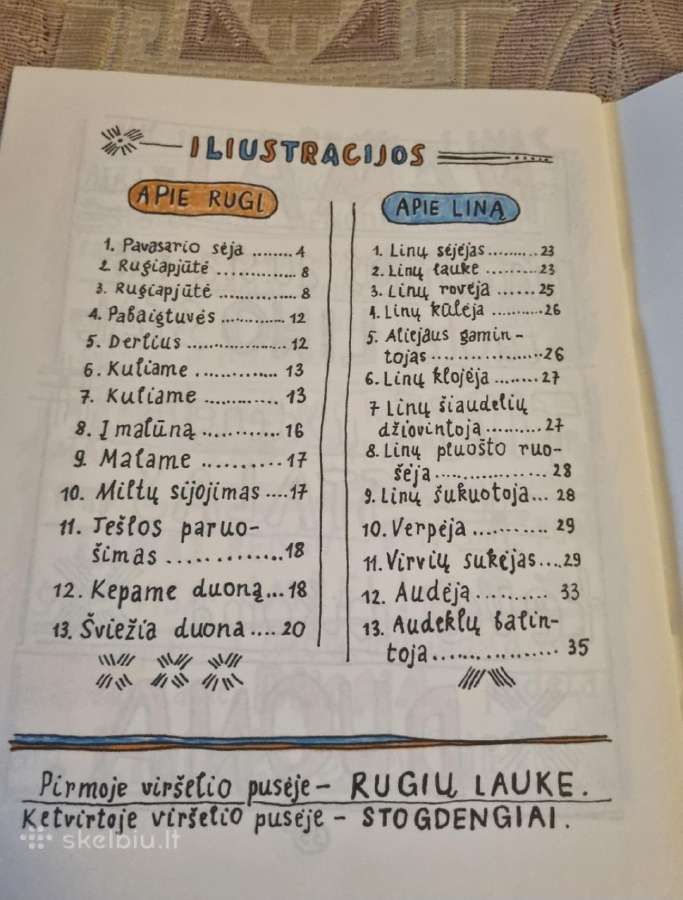 ILIUSTRACIJOS
APIE RUGĮ
1. Pavasario sėja ........4
2. Rugiapjūtė .............8
3. Rugiapjūtė .............8
4. Pabaigtuvės ............12
5. Derlius ................12
6. Kuliame ............. 13
7. Kuliame ............. 13
8. Į malūną ........... 16
9. Malame .......... 17
10. Miltų sijojimas ....17
11. Tešlos paruo-
šimas .............18
12. Kepame duoną...18
13. Šviežia duona .... 20
APIE LINĄ
1. Linų sėjėjas.......... 23
2. Linų lauke .......... 23
3. Linų rovėja ...... 25
4. Linų kūlėja .......... 26
5. Aliejaus gamin-
tojas .................. 26
6. Linų klojėja ........ 27
7 Linų šiaudelių
džiovintoja ........... 27
8. Linų pluošto ruo-
šėja ................ 28
9. Linų šukuotoja... 28
10. Verpėja ........... 29
11. Virvių sukėjas....29
12. Audėja ........... 33
13. Audeklų balin-
toja ................ 35
Pirmoje viršelio pusėje – RUGIŲ LAUKE.
Ketvirtoje viršelio pusėje – STOGDENGIAI.
skelbiu.lt